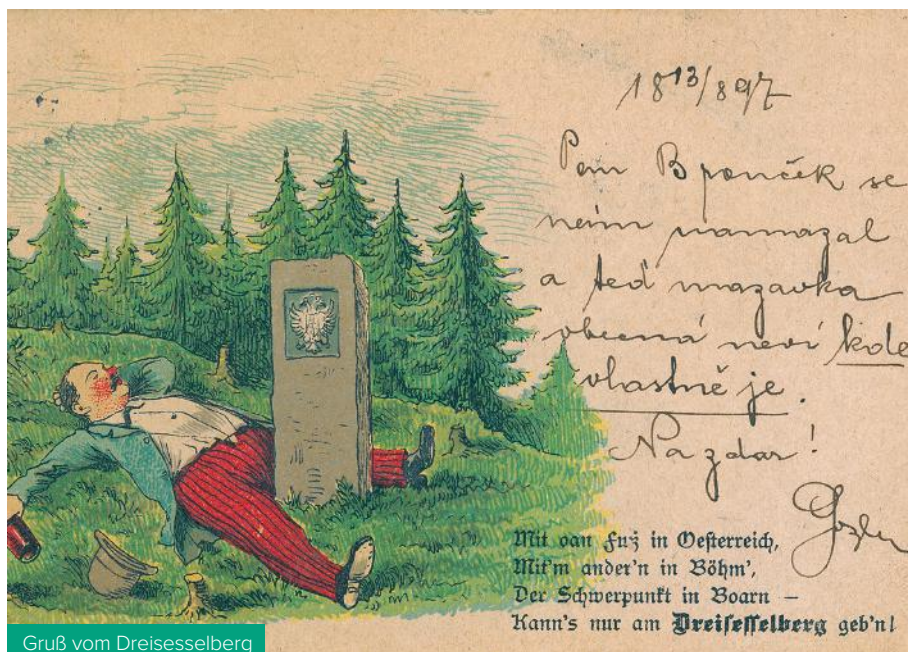 18 13/8 97
Pan Brouček se
nám namazal
a teď mazavka
obecná neví kde
vlastně je.
Na zdar!
Mit oan Fuß in Oesterreich,
Mit'm ander'n in Böhm',
Der Schwerpunkt in Boarn –
Kann's nur am Dreisesselberg geb'n!
Gruß vom Dreisesselberg